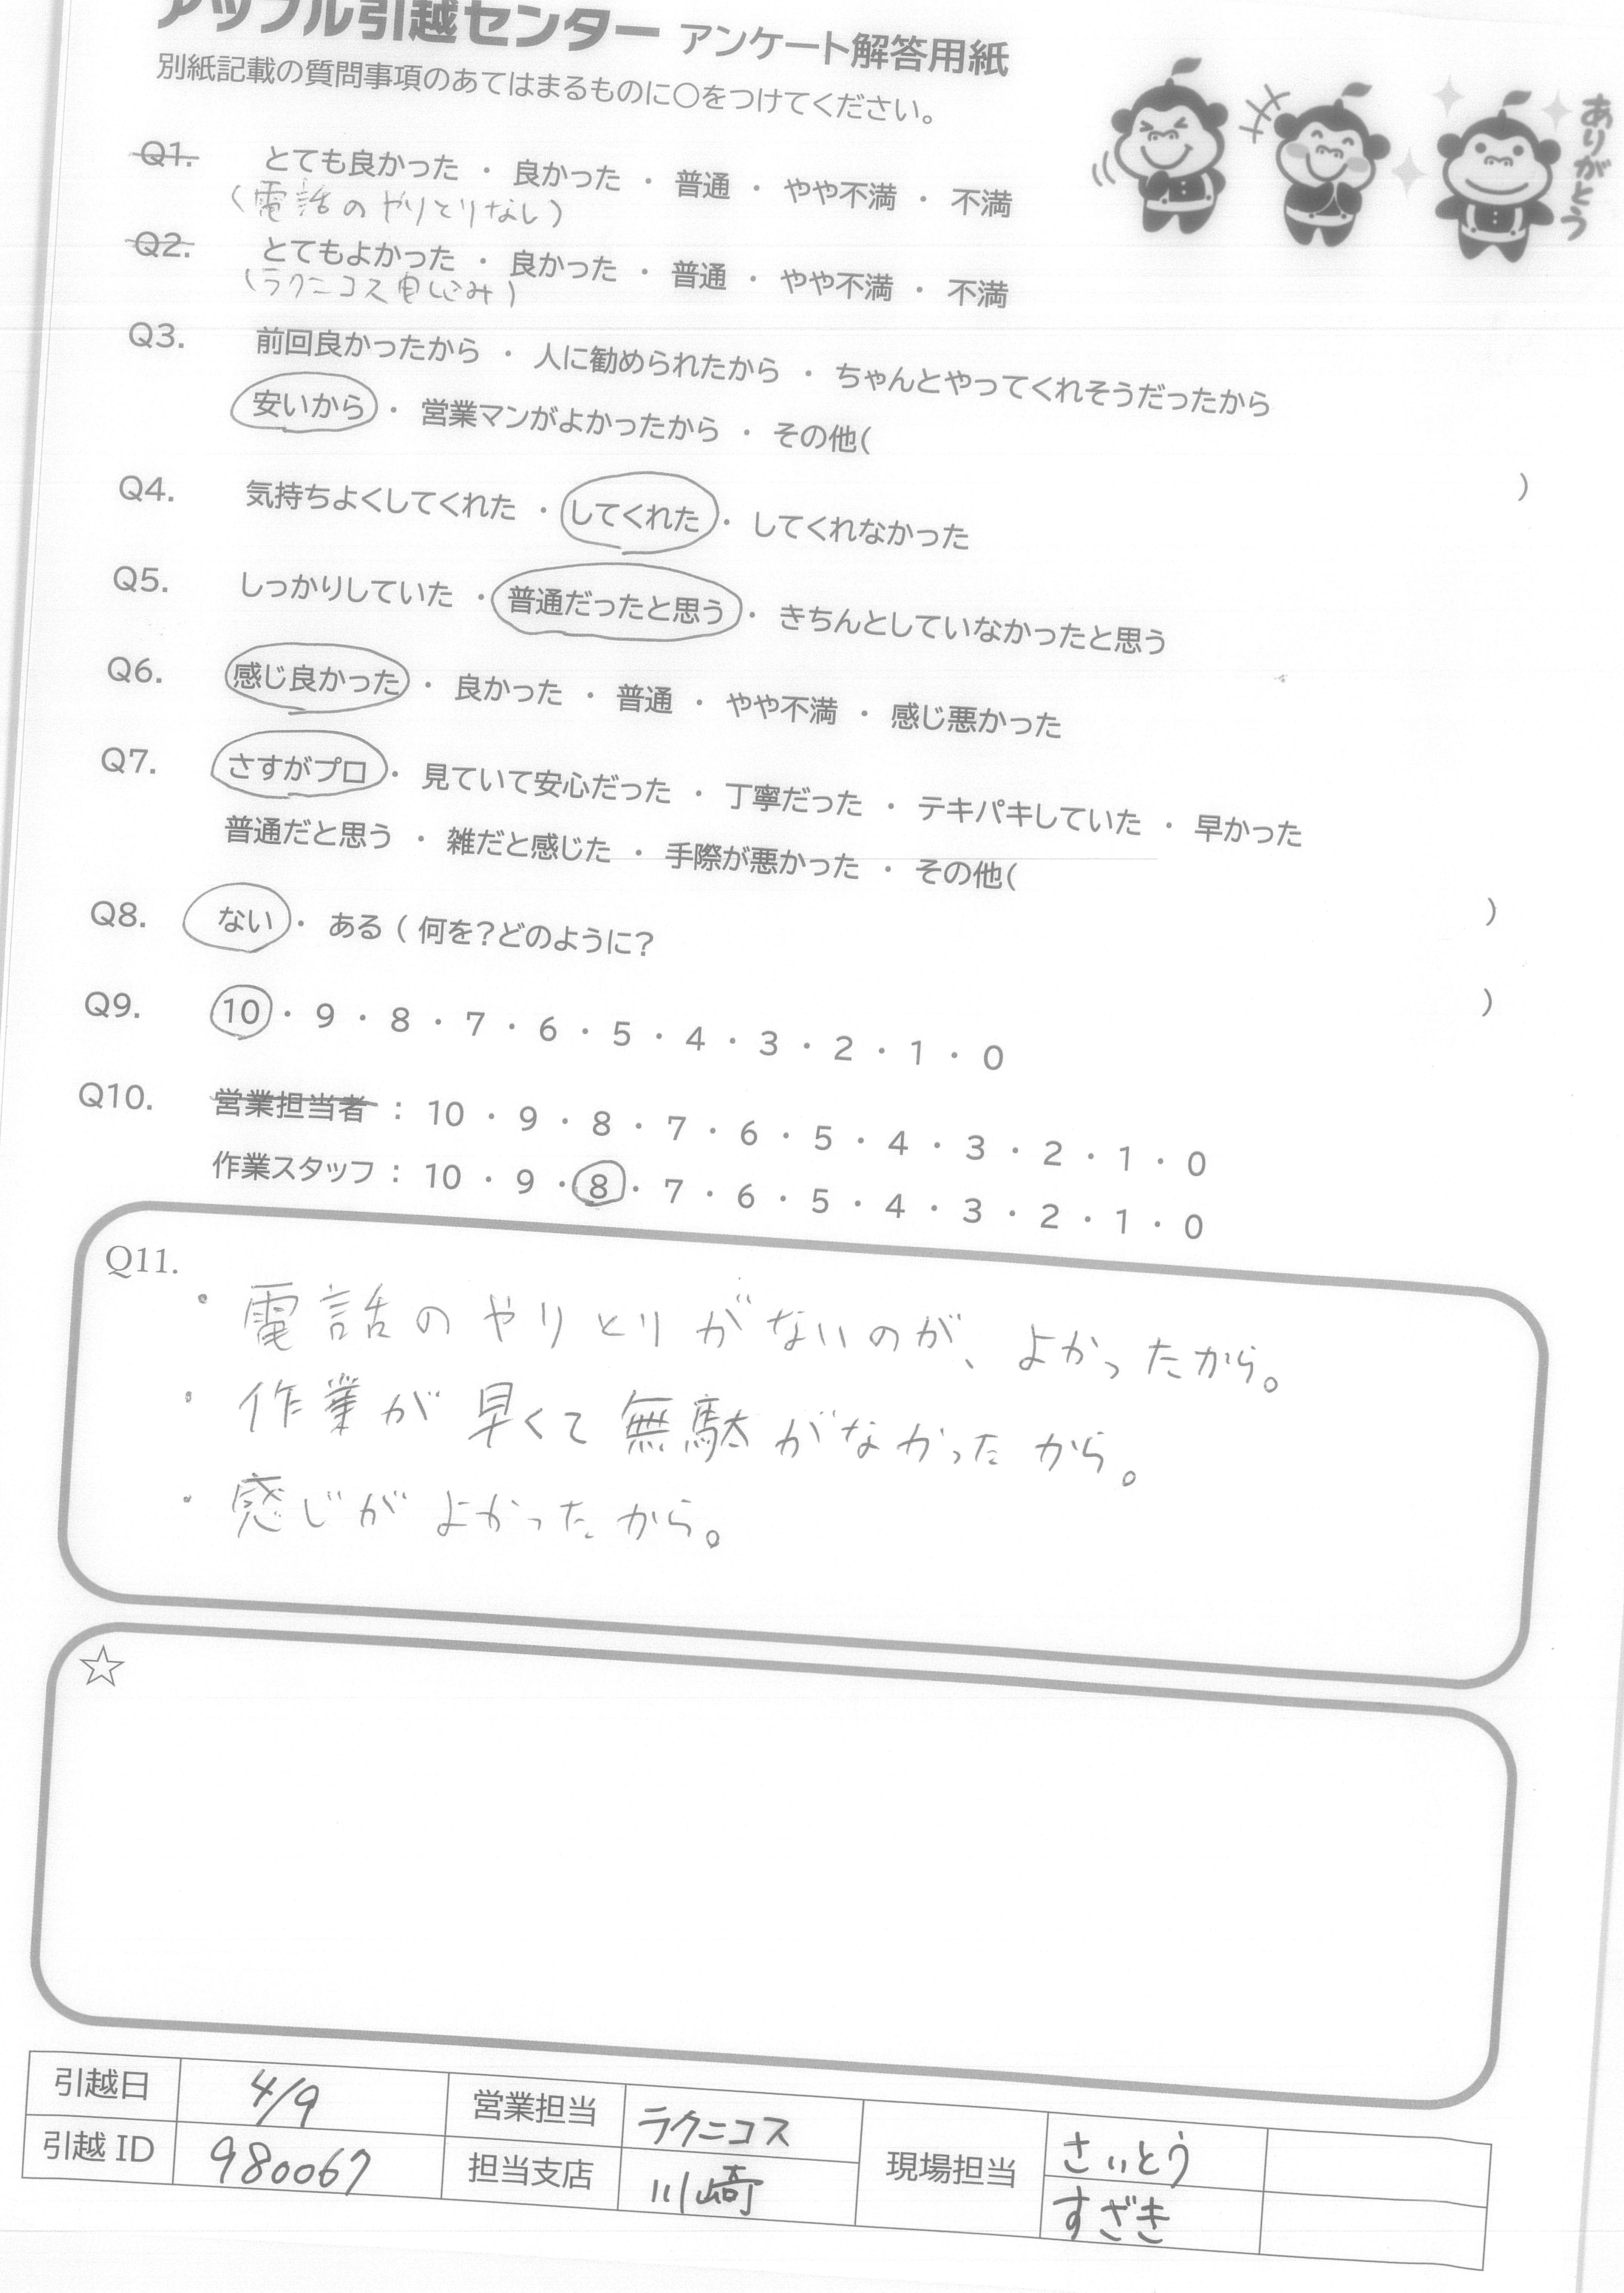 アップル引越センター アンケート解答用紙
別紙記載の質問事項のあてはまるものに○をつけてください。
ありがとう
Q1. とても良かった ・ 良かった ・ 普通 ・ やや不満 ・ 不満
(電話のやりとりなし)
Q2. とてもよかった ・ 良かった ・ 普通 ・ やや不満 ・ 不満
(ラクニコス申し込み)
Q3. 前回良かったから ・ 人に勧められたから ・ ちゃんとやってくれそうだったから
安いから ・ 営業マンがよかったから ・ その他( )
Q4. 気持ちよくしてくれた ・ してくれた ・ してくれなかった
Q5. しっかりしていた ・ 普通だったと思う ・ きちんとしていなかったと思う
Q6. 感じ良かった ・ 良かった ・ 普通 ・ やや不満 ・ 感じ悪かった
Q7. さすがプロ ・ 見ていて安心だった ・ 丁寧だった ・ テキパキしていた ・ 早かった
普通だと思う ・ 雑だと感じた ・ 手際が悪かった ・ その他( )
Q8. ない ・ ある ( 何を?どのように? )
Q9. 10 ・ 9 ・ 8 ・ 7 ・ 6 ・ 5 ・ 4 ・ 3 ・ 2 ・ 1 ・ 0
Q10. 営業担当者 : 10 ・ 9 ・ 8 ・ 7 ・ 6 ・ 5 ・ 4 ・ 3 ・ 2 ・ 1 ・ 0
作業スタッフ : 10 ・ 9 ・ 8 ・ 7 ・ 6 ・ 5 ・ 4 ・ 3 ・ 2 ・ 1 ・ 0
Q11.
・電話のやりとりがないのが、よかったから。
・作業が早くて無駄がなかったから。
・感じがよかったから。
☆
引越日 4/9 営業担当 ラクニコス 現場担当 さいとう
引越 ID 980067 担当支店 川崎 すざき